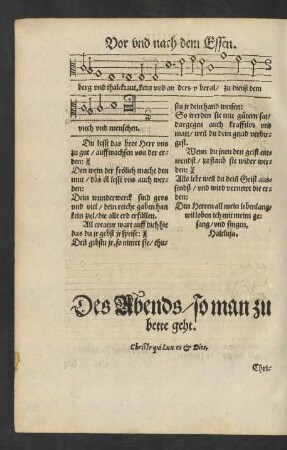 Vor vnd nach dem Essen.
berg vnd thal/ kraut, kein vnd an ders v beral/ zu dienst dem
viech vnd menschen.
Du lesst das brot Herr vns
zu gut / auff wachsen von der er-
den:
Den wein der frölich macht den
mut / das öl lesst vns auch wer-
den:
Dein wunderwerck sind gros
vnd viel / dein reiche gaben han
kein ziel / die alle erd erfüllen.
All creatur wart auff dich hie
das du je gebst jr speise:
Den gibstu je, so nimet sie / thu-
stu je dein hand weisen:
So werden sie mit gütern sat /
dargegen auch krafftlos vnd
matt / weil du dein gnad verbir-
gest.
Wenn du jnen den geist ent-
wendst / zu staub sie wider wer-
den:
Also lebt was du deiñ Geist aus-
sendst / vnd wird vernewt die er-
den:
Den Herren all mein lebenlang /
wil loben ich mit meim ge-
sang / vnd singen,
Haleluja.
Des Abends / so man zu
bette geht.
Christe qui Lux es & Dies,
Chri-